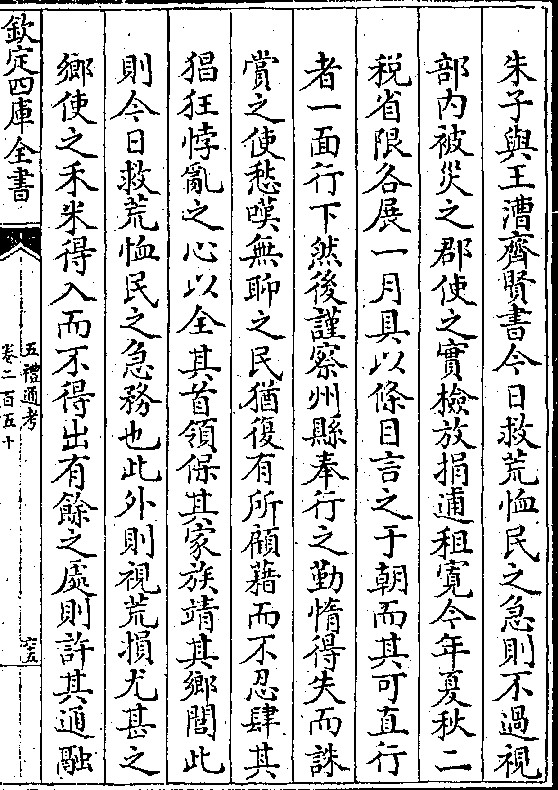 朱子與王漕齊賢書今日救荒恤民之急則不過視
部内被災之郡使之實檢放捐逋租寛今年夏秋二
税省限各展一月具以條目言之于朝而其可直行
者一面行下然後謹察州縣奉行之勤惰得失而誅
賞之使愁嘆無聊之民猶復有所顧藉而不忍肆其
猖狂悖亂之心以全其首領保其家族靖其鄉閭此
則今日救荒恤民之急務也此外則視荒損尤甚之
鄉使之禾米得入而不得出有餘之處則許其通融
欽定四庫全書
五禮通考
卷二百五十